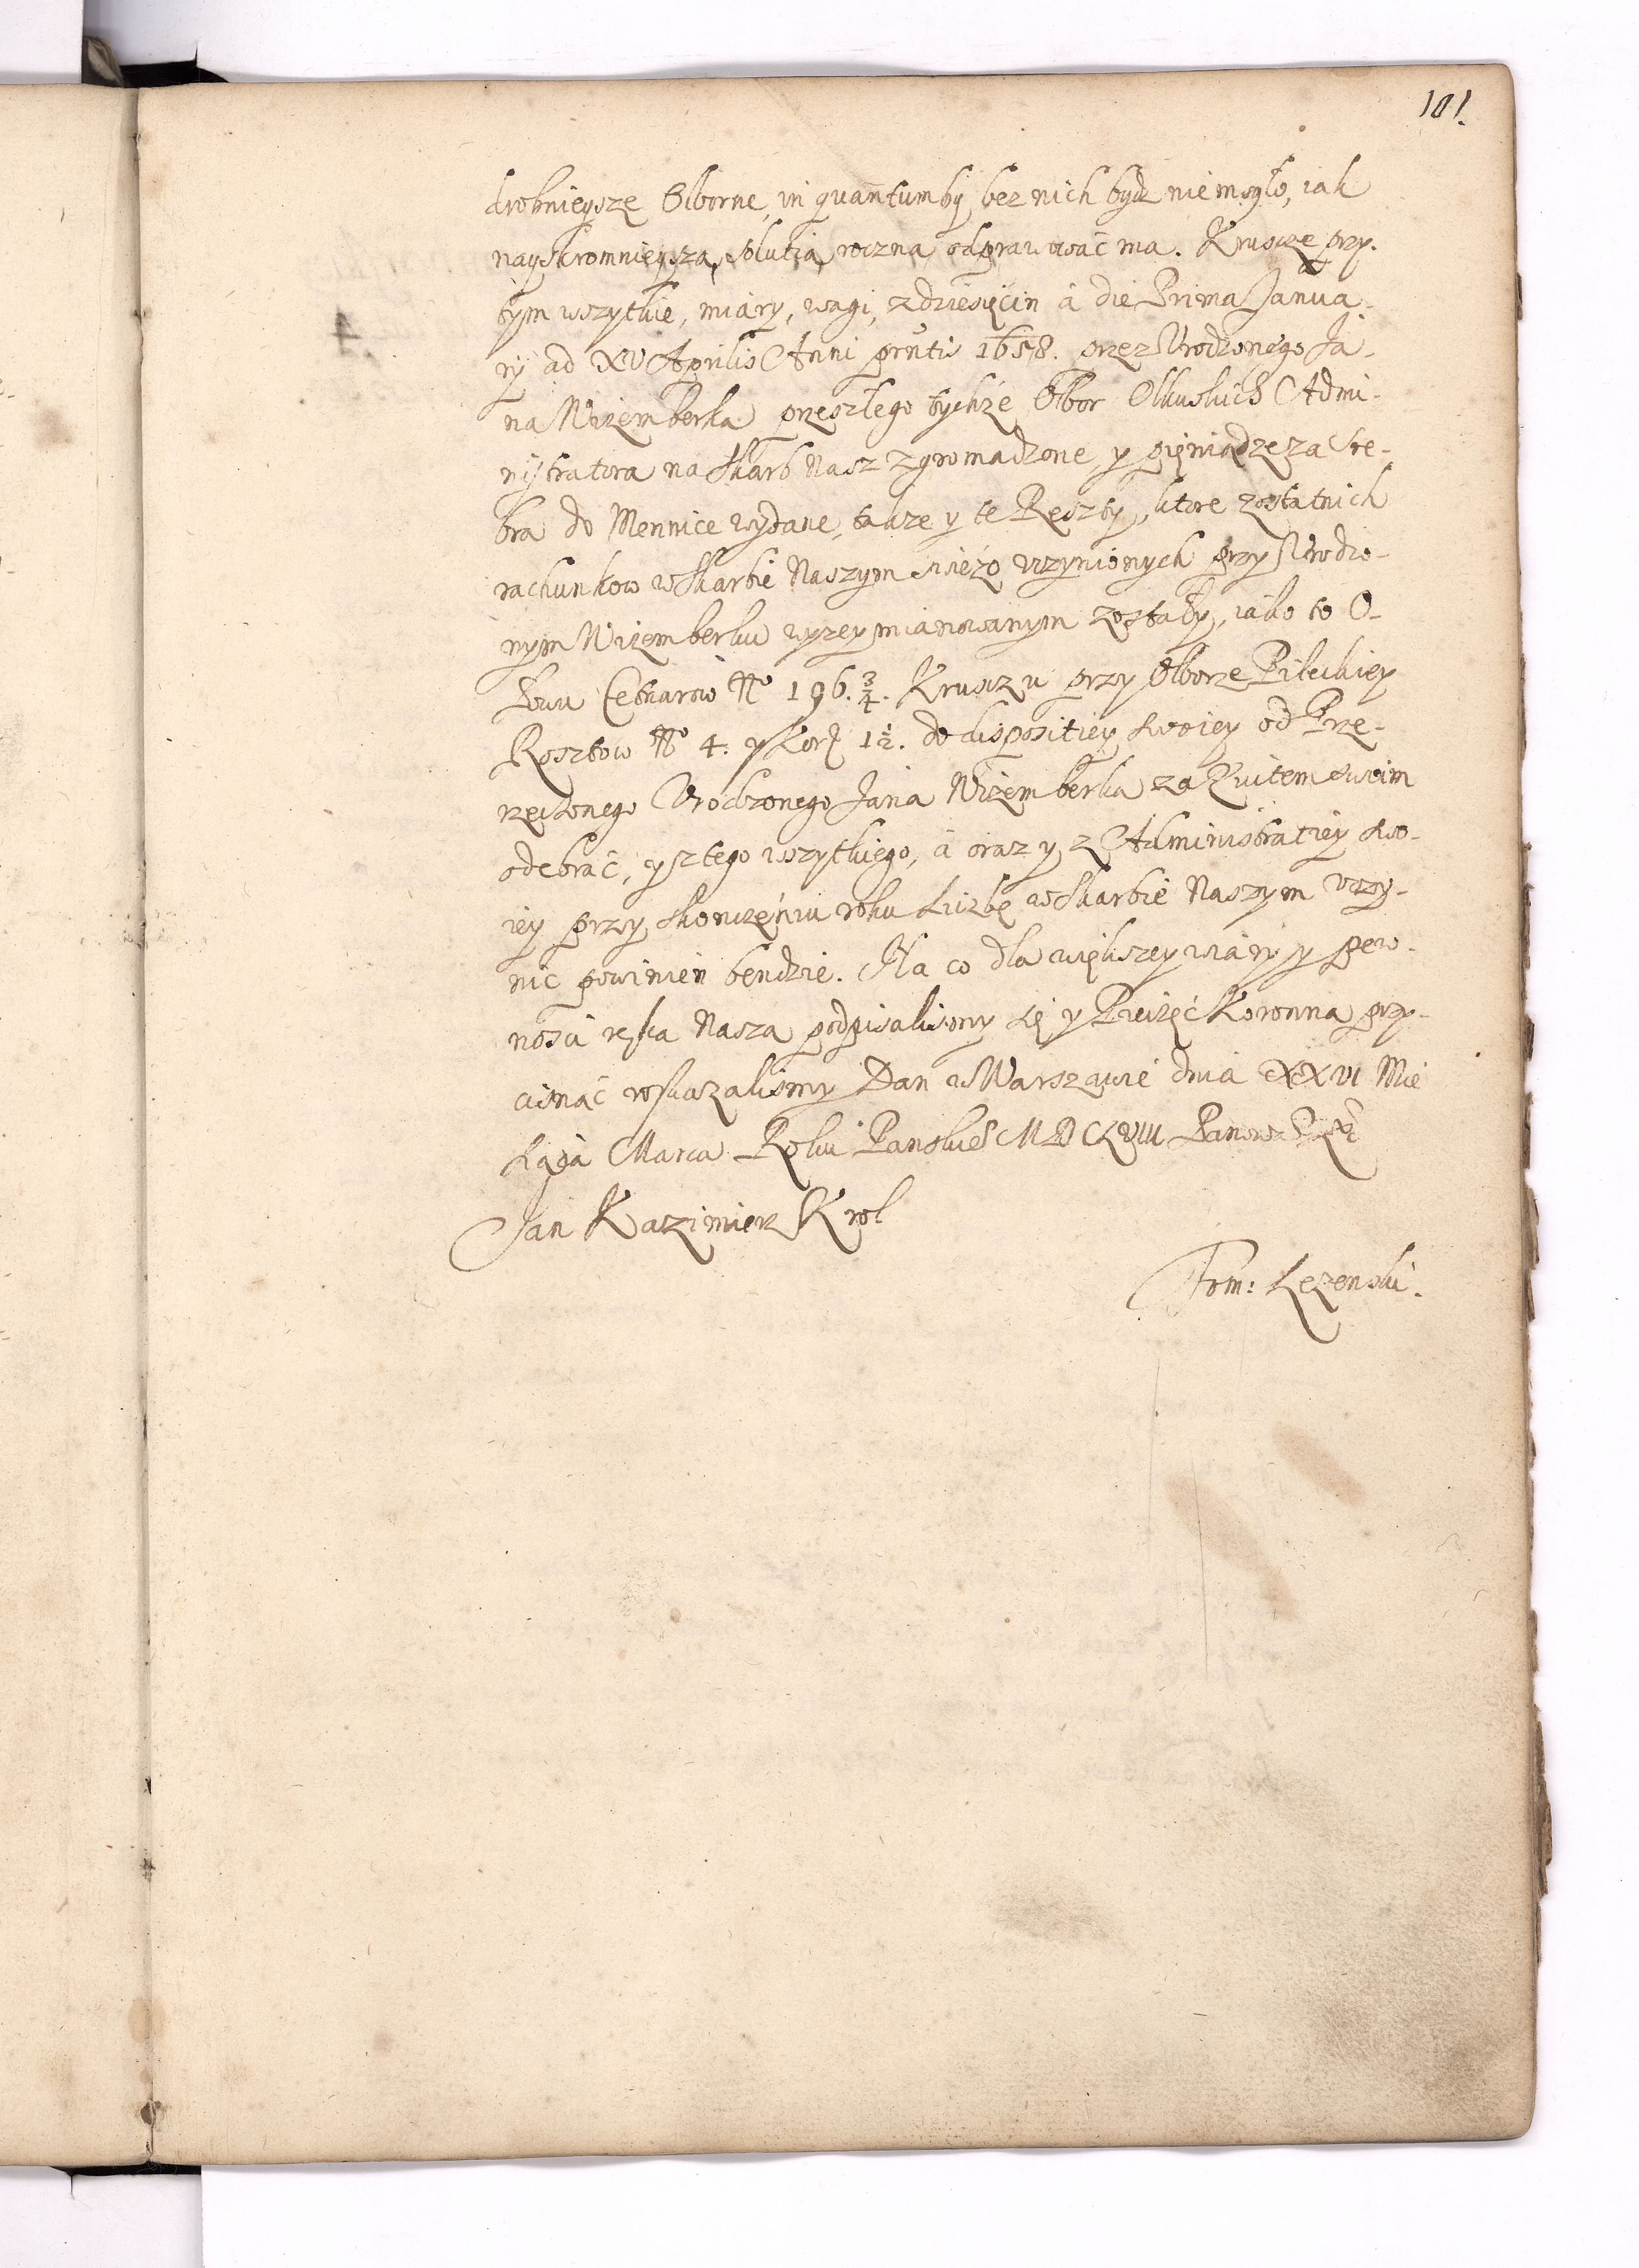 101.
drobnieysze Olborne, in quantumby bez nich bydz nie mogło, iak
nayskromnieyszą solutią roczną odprawować ma. Kruszce przy
tym wszytkie, miary, wagi, z dziesięcin á die Prima Janua-
rij ad XV Aprilis Anni prntis 1658. przez Vrodzonego Ja-
na Wizemberka przeszłego tychże Olbor Olkuskich Admi-
nistratora na Skarb Nasz zgromadzone, y pięniądze za sre-
bra do Mennice wydane, takze y te Reszty, ktore z ostatnich
rachunkow w Skarbie Naszym swiezo vczynionych przy Vrodzo-
nym Wizemberku wyzey mianowanym zostały, iako to O-
łowu Cetnarow No 196. 3/4. Kruszcu przy Olborze Pileckiey
Rosztow No 4. y Korz 1 1/2. do dispositiey swoiey od Prze-
rzeczonego Vrodzonego Jana Wizemberka za Quitem swoim
odebrać, y z tego wszytkiego, á oraz y z Administratiey swo-
iey przy skonczeniu roku Liczbę w Skarbie Naszym vczy-
nić powinien bendzie. Na co dla większey wiary y pew-
nosci ręka Nasza podpisalismy się y Pieczęć Koronna przy-
cisnąć roskazalismy Dan w Warszawie dnia XXVI Mie
siąca Marca Roku Panskieo MDCLVIII Panowa
Jan Kazimierz Krol
Tom: Lezenski.